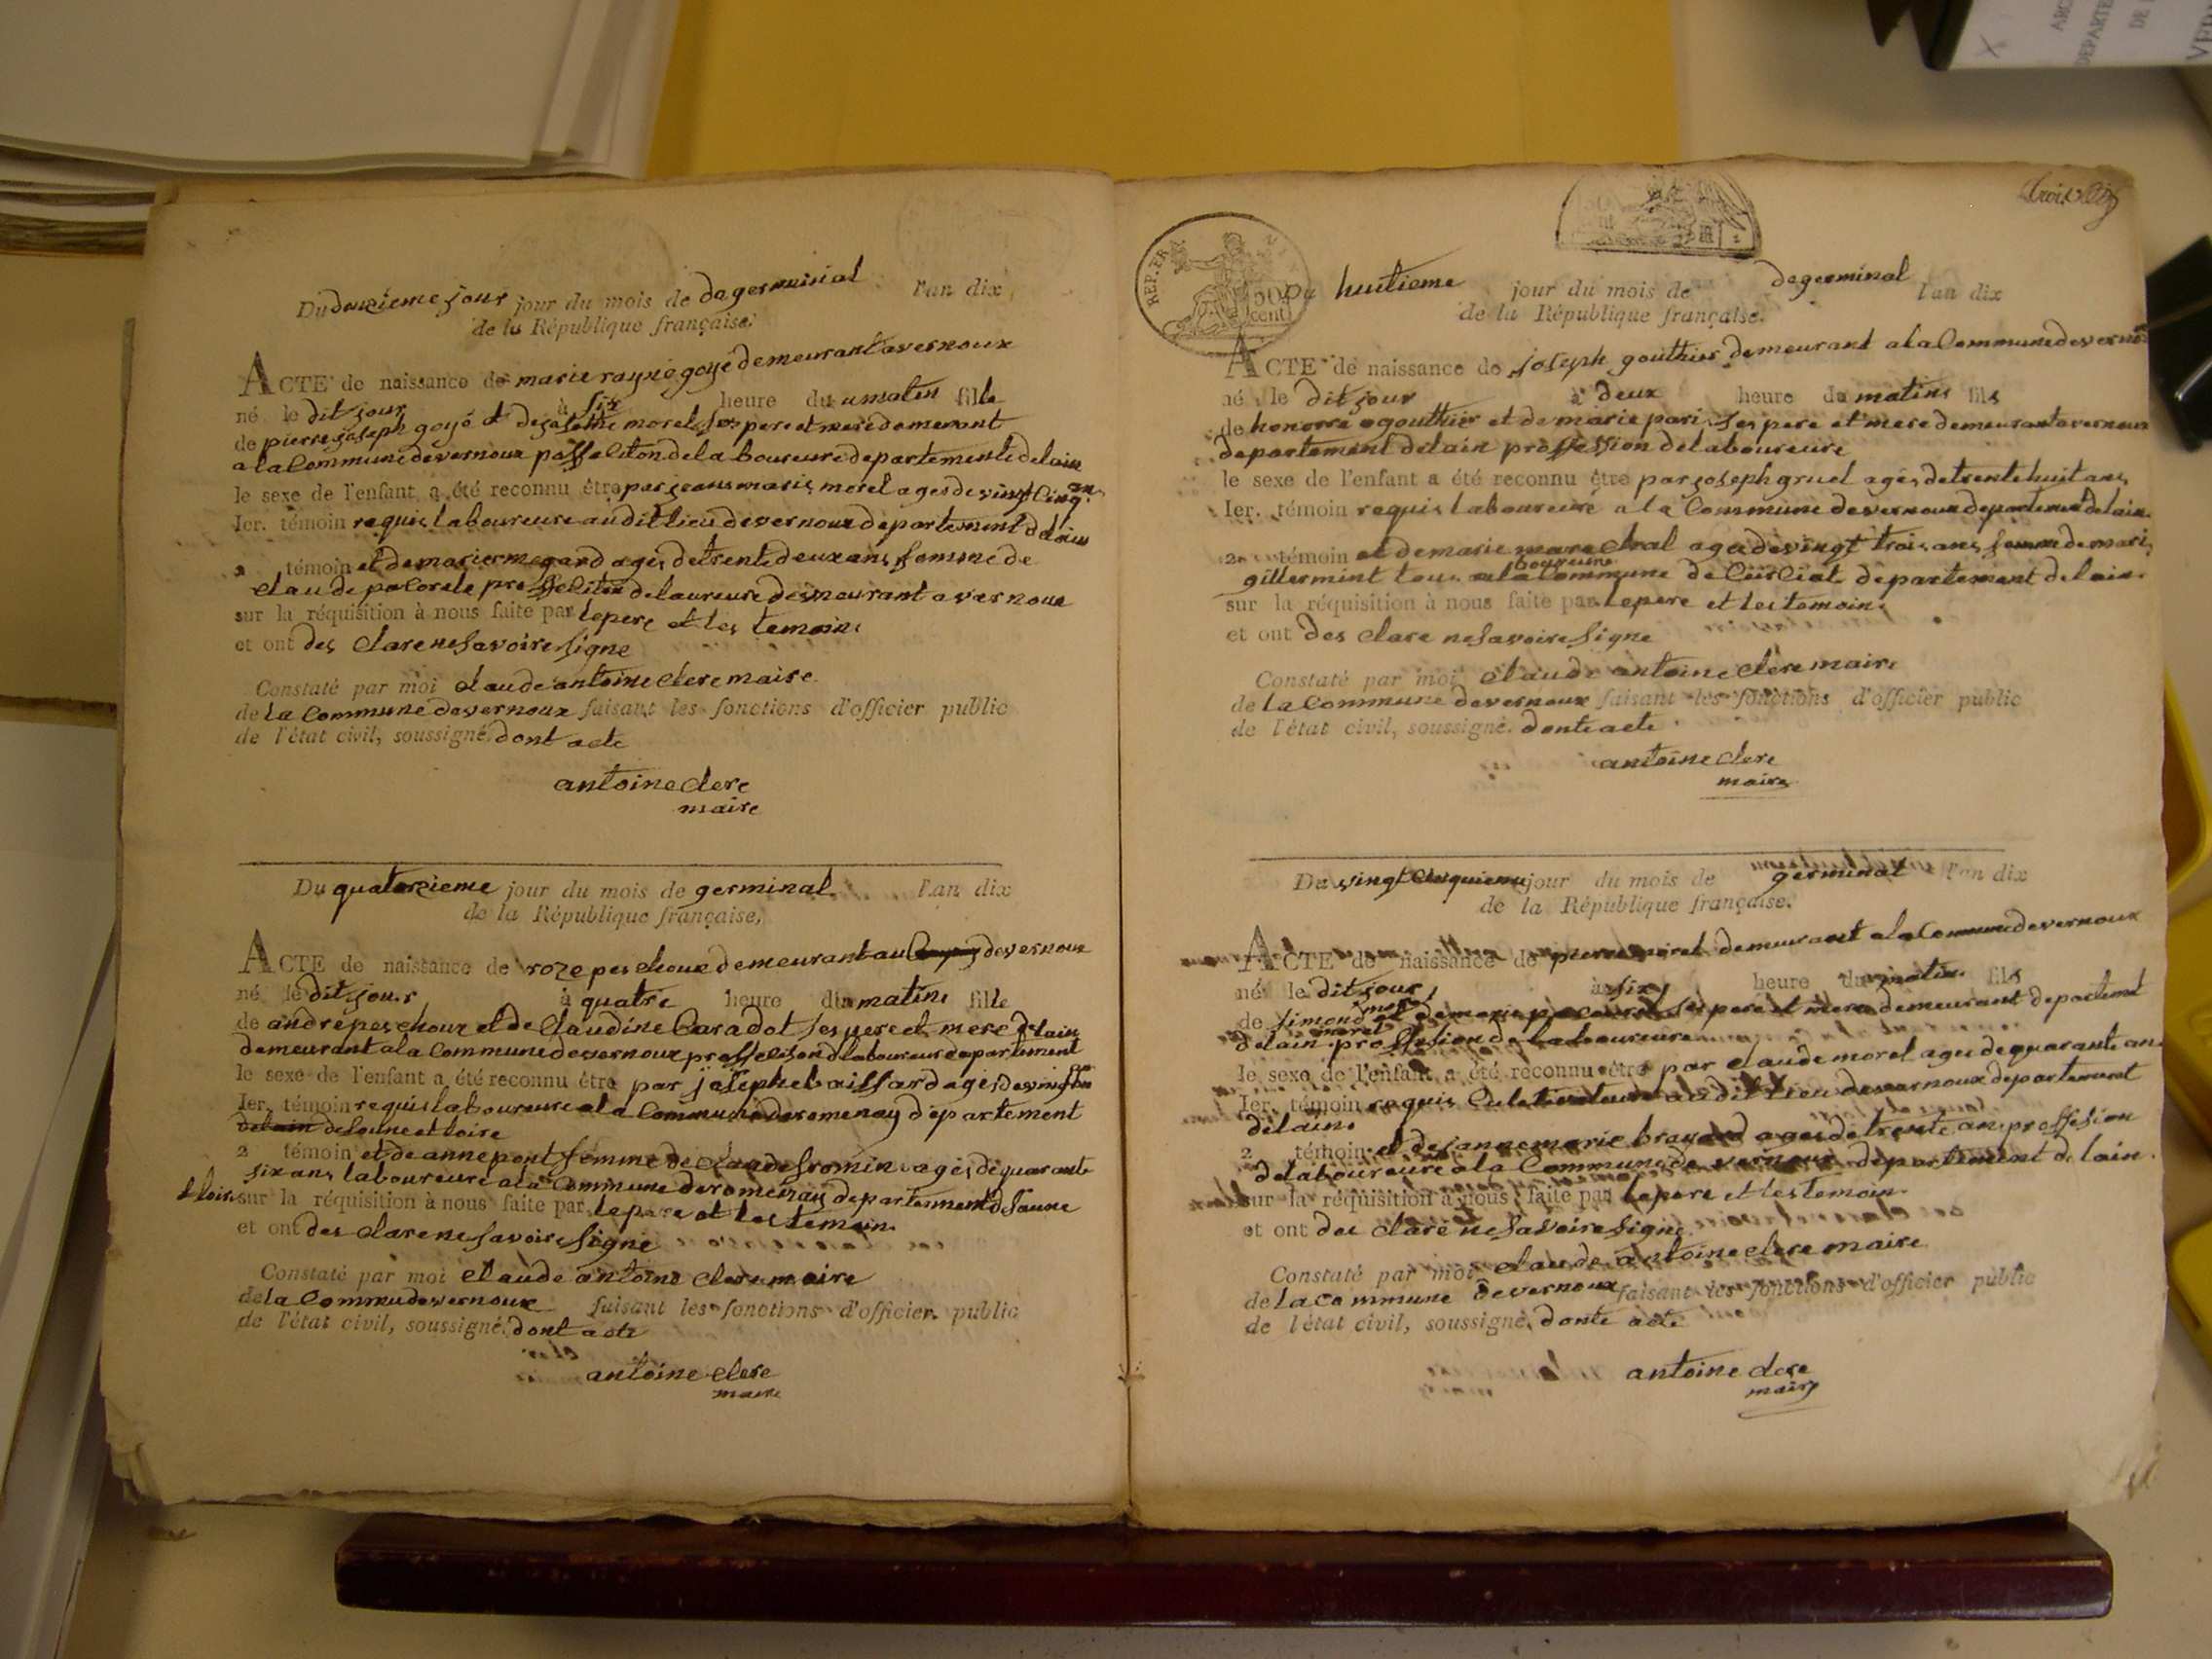 Du douzieme jour jour du mois de de germinal l'an dix
de la République française.
ACTE de naissance de marie rayne goyé demeurant a vernoux
né le dit jour à six heure du umaten fille
de pierre joseph goyé et de josethe morel ses pere et mere demerant
a la Commune de vernoux de la boureure departemente delain
le sexe de l'enfant a été reconnu être par jeans marie morel ages de vingt cinq ans
Ier. témoin requis laboureure au dit lieu de vernoux departement delain
2 témoin et de marie megard ages de trente deux ans femme de
claude pacorele delaureure demeurant a vernoux
sur la réquisition à nous faite par le pere et les temoins
et ont des clare ne savoire signe
Constaté par moi claude antoine clere maire
de la Commune de vernoux faisant les fonctions d'officier public
de l'état civil, soussigné. dont acte
antoine clere
maire
Du quatorzieme jour du mois de germinal l'an dix
de la République française,
ACTE de naissance de roze pes choux demeurant au de vernoux
né le dit jour à quatre heure du matin fille
de andré pes choux et de Claudine Caradot ses pere et mere delain
demeurant a la Commune de vernoux departement
le sexe de l'enfant a été reconnu être par josephe baissard ages de vingt
Ier. témoin requis laboureure a la Commune de romenay departement
delain de saune et loire
2 témoin et de anne pont femme de claude fromin ages de quarante
six ans laboureure a la Commune de romenay departement de saune
et loire sur la réquisition à nous faite par le pere et les temoin
et ont des clare ne savoire signe
Constaté par moi claude antoine clere maire
de la Commude vernoux faisant les fonctions d'officier public
de l'état civil, soussigné. dont acte
antoine clere
maire
REP. FR.
50
cent
Du huitieme jour du mois de de germinal l'an dix
de la République française.
ACTE de naissance de joseph gouthier demeurant a la Commune de vernoux
né le dit jour à deux heure du matins fils
de honorre ogouthier et de marie pari ses pere et mere demeurant a vernoux
departement delain proffession de laboureure
le sexe de l'enfant a été reconnu être par joseph gruel ages de trente huit ans
Ier. témoin requis laboureure a la Commune de vernoux departement delain
2 témoin et de marie marechal ages de vingt trois ans femme de mari
gillermint tous a la boureure Commune de Curciat departement de lain
sur la réquisition à nous faite par le pere et les temoins
et ont des clare ne savoire signe
Constaté par moi claude antoine clere maire
de la Commune de vernoux faisant les fonctions d'officier public
de l'état civil, soussigné. donte acte
antoine clere
maire
Du vingt cinquieme jour du mois de germinal l'an dix
de la République française.
ACTE de naissance de pierre morel demeurant a la Commune de vernoux
né le dit jour à six heure du matin fils
de simond morel et de marie ses pere et mere demeurant departemt
delain proffesion de laboureure
le sexe de l'enfant a été reconnu être par claude morel ages de quarante ans
Ier. témoin requis Culetivateure au dit lieu de vernoux departement
delain
2 témoin et de janne marie brayard ages de trente ans proffesion
de laboureure a la Commune de vernoux departement de lain
sur la réquisition à nous faite par le pere et les temoin
et ont des clare ne savoire signe
Constaté par moi claude antoine clere maire
de la commune de vernoux faisant les fonctions d'officier public
de l'état civil, soussigné, donte acte
antoine clere
maire